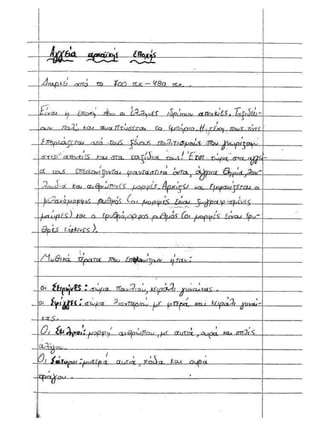 Αγγεία αρχαϊκής εποχής
Διαρκεί από το 700 πχ - 480 πχ...
Είναι η εποχή που οι έλληνες ιδρύουν αποικίες. Ταξιδεύ-
ουν πολύ και αναπτύσσεται το εμπόριο. Η τέχνη τους τότε
επηρεάζεται από τους ξένους πολιτισμούς που γνώριζαν
στις αποικίες και στα ταξίδια τους! Έτσι τώρα στα αγγεί-
α τους απεικονίζονται φανταστικά όντα, άγρια θηρία, λου-
λούδια και ανθρώπινες μορφές. Αρχίζει να εμφανίζεται ο
μελανόμορφος ρυθμός (οι μορφές είναι ζωγραφισμένες
μαύρες) και ο ερυθρόμορφος ρυθμός (οι μορφές είναι ερυ-
θρές κόκκινες).
Μυθικά τέρατα που επινόησαν ήταν:
οι Σειρήνες: σώμα πουλιού, κεφάλι γυναίκας.
οι Σφίγγες: σώμα λιονταριού με φτερά και κεφάλι γυναί-
κας.
Οι Σειληνοί: μορφή ανθρώπου, με αυτιά, ουρά και οπλές
αλόγου.
Οι Σάτυροι: μυτερά αυτιά, πόδια και ουρά
τράγου.